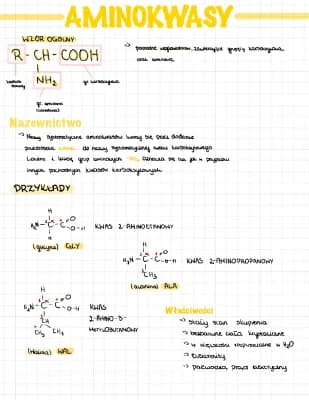 AMINOKWASY
WZÓR OGÓLNY
R - CH - COOH
NH₂
→ pochodne węglowodorów, zawierające grupę karboksylową
oraz aminową
gr. karboksylowa
gr. aminowa
Nazewnictwo
→ Nazwy systematyczne aminokwasów tworzy się przez dodanie
przedrostka amino- do nazwy systematycznej kwasu karboksylowego
Lokant i liczbę grup aminowych -NH₂ się jak w przypadku
innych pochodnych kwasów karboksylowych
PRZYKŁADY
H
H₂N - C - C O O-H
H
KWAS 2-AMINOETANOWY
(glicyna) GLY
H
H₂N - C - C O O-H
CH₃
KWAS 2-AMINOPROPANOWY
(alanina) ALA
H
H₂N - C - C O O-H
CH
CH₃ CH₃
KWAS
2-AMINO-3-
METYLOBUTANOWY
(Walina) WAL
Właściwości
→ stały stan skupienia
→ bezbarwne ciała krystaliczne
→ w większości rozpuszczalne w H₂O
→ Elektrolity
→ prąd elektryczny